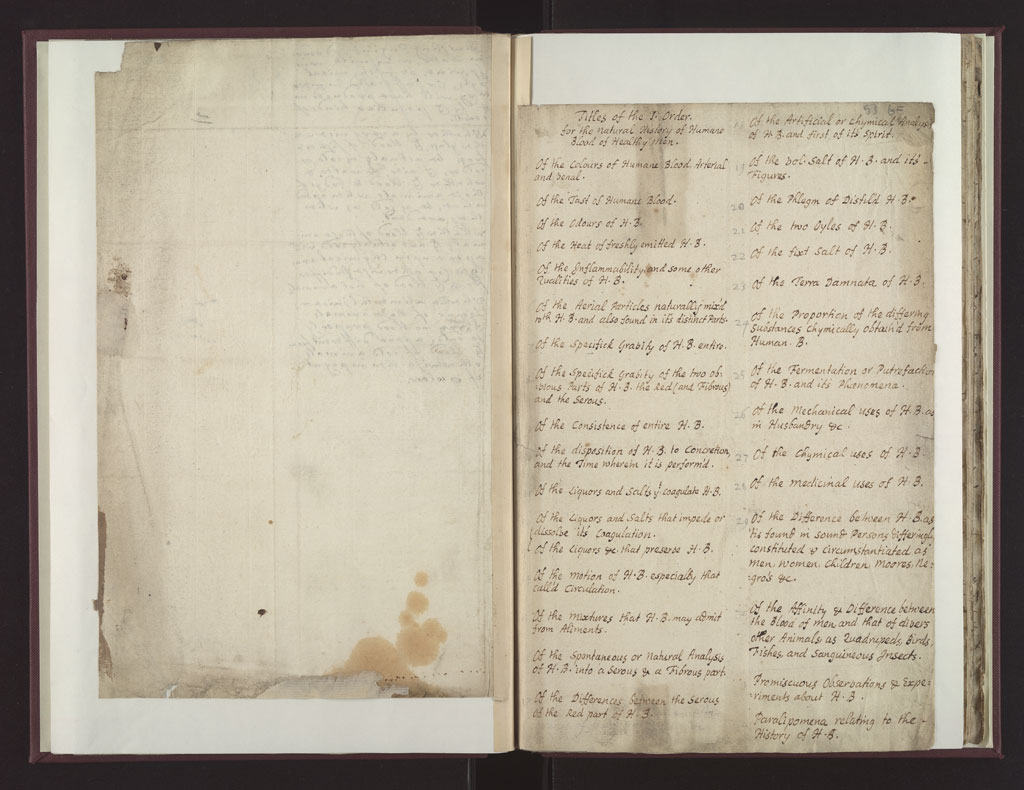 Titles of the 1. Order.
for the natural History of Humane
Blood of Healthy men.
Of the Colours of Humane Blood Arterial
and venal.
Of the Tast of Humane Blood.
Of the Odours of H. B.
Of the Heat of freshly emitted H. B.
Of the Inflammability, and some other
Qualities of H. B.
Of the Aerial Particles naturally mix'd
wth H. B. and also found in its distinct Parts.
Of the Specifick Gravity of H. B. entire.
Of the Specifick Gravity of the two ob-
vious Parts of H. B. the Red (and Fibrous)
and the Serous.
Of the Consistence of entire H. B.
Of the disposition of H. B. to Concretion,
and the Time wherein it is perform'd.
Of the Liquors and Salts yt coagulate H. B.
Of the Liquors and Salts that impede or
dissolve its Coagulation.
Of the Liquors &c. that preserve H. B.
Of the motion of H. B. especially that
call'd Circulation.
Of the mixtures that H. B. may admit
from Aliments.
Of the Spontaneous or Natural Analysis
of H. B. into a Serous & a Fibrous part.
Of the Differences between the Serous
of the Red part of H. B.
53
Of the Artificial or Chymical Analys
of H. B. and first of its Spirit.
19 Of the vol. Salt of H. B. and its
Figures.
20 Of the Phlegm of Distill'd H. B.
21 Of the two Oyles of H. B.
22 Of the fixt Salt of H. B.
23 Of the Terra Damnata of H. B.
24 Of the Proportion of the differing
Substances Chymically obtain'd from
Human. B.
25 Of the Fermentation or Putrefaction
of H. B. and its Phænomena.
26 Of the Mechanical uses of H. B. as
in Husbandry &c.
27 Of the Chymical uses of H. B.
28 Of the medicinal uses of H. B.
29 Of the Difference between H. B. as
'tis found in sound Persons differingly
constituted & circumstantiated as
men, women, Children, Moores, Ne-
gro's &c.
Of the Affinity & Difference between
the Blood of men and that of divers
other Animals, as Quadrupeds, Birds,
Fishes, and Sanguineous Insects.
Promiscuous Observations & Expe-
riments about H. B.
Paralipomena relating to the
History of H. B.